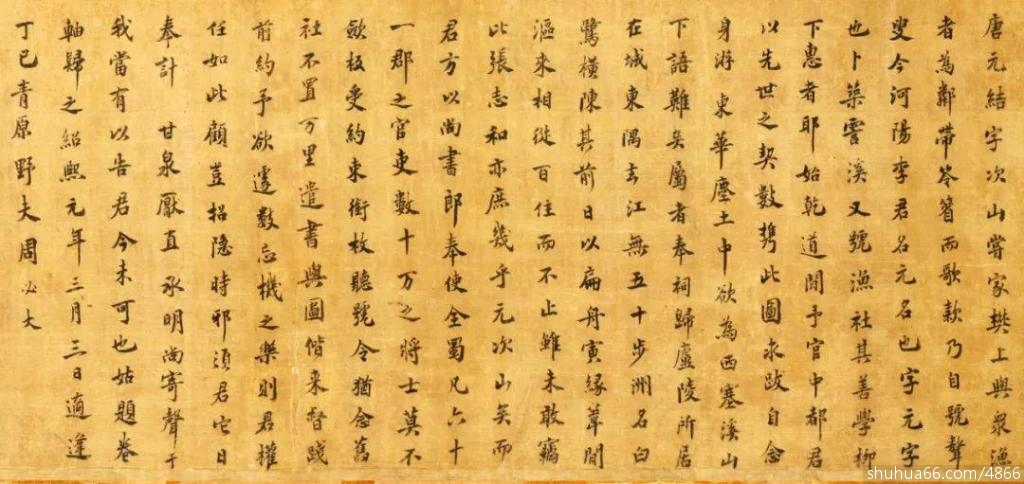 唐元結字次山嘗家樊上與眾漁
者為鄰帶笭箵而歌欸乃自號聱
叟今河陽李君名元名也字元字
也卜築霅溪又號漁社其善學柳
下惠者耶始乾道間予官中都君
以先世之契數攜此圖求跋自念
身游東華塵土中欲為西塞溪山
下語難矣屬者奉祠歸廬陵所居
在城東隅去江無五十步洲名白
鷺橫陳其前日以扁舟寅緣葦間
漚來相從百住而不止雖未敢竊
比張志和亦庶幾乎元次山矣而
君方以尚書郎奉使全蜀凡六十
一郡之官吏數十万之將士莫不
歛板受約束銜枚聽號令猶念舊
社不置万里遣書與圖偕來督踐
前約予欲遽數忘機之樂則君權
任如此顧豈招隱時邪須君它日
奉計 甘泉厭直 承明尚寄聲于
我當有以告君今未可也姑題卷
軸歸之紹熙元年三月三日適逢
丁巳青原野夫周必大
shuhua66.com/4866